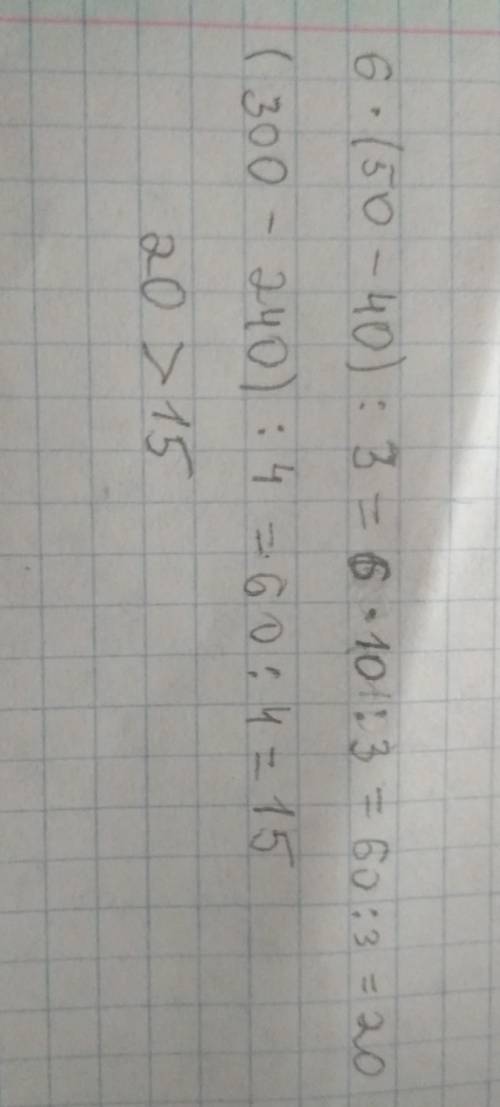 6 · (50 - 40) : 3 = 6 · 10 : 3 = 60 : 3 = 20
(300 - 240) : 4 = 60 : 4 = 15
20 > 15